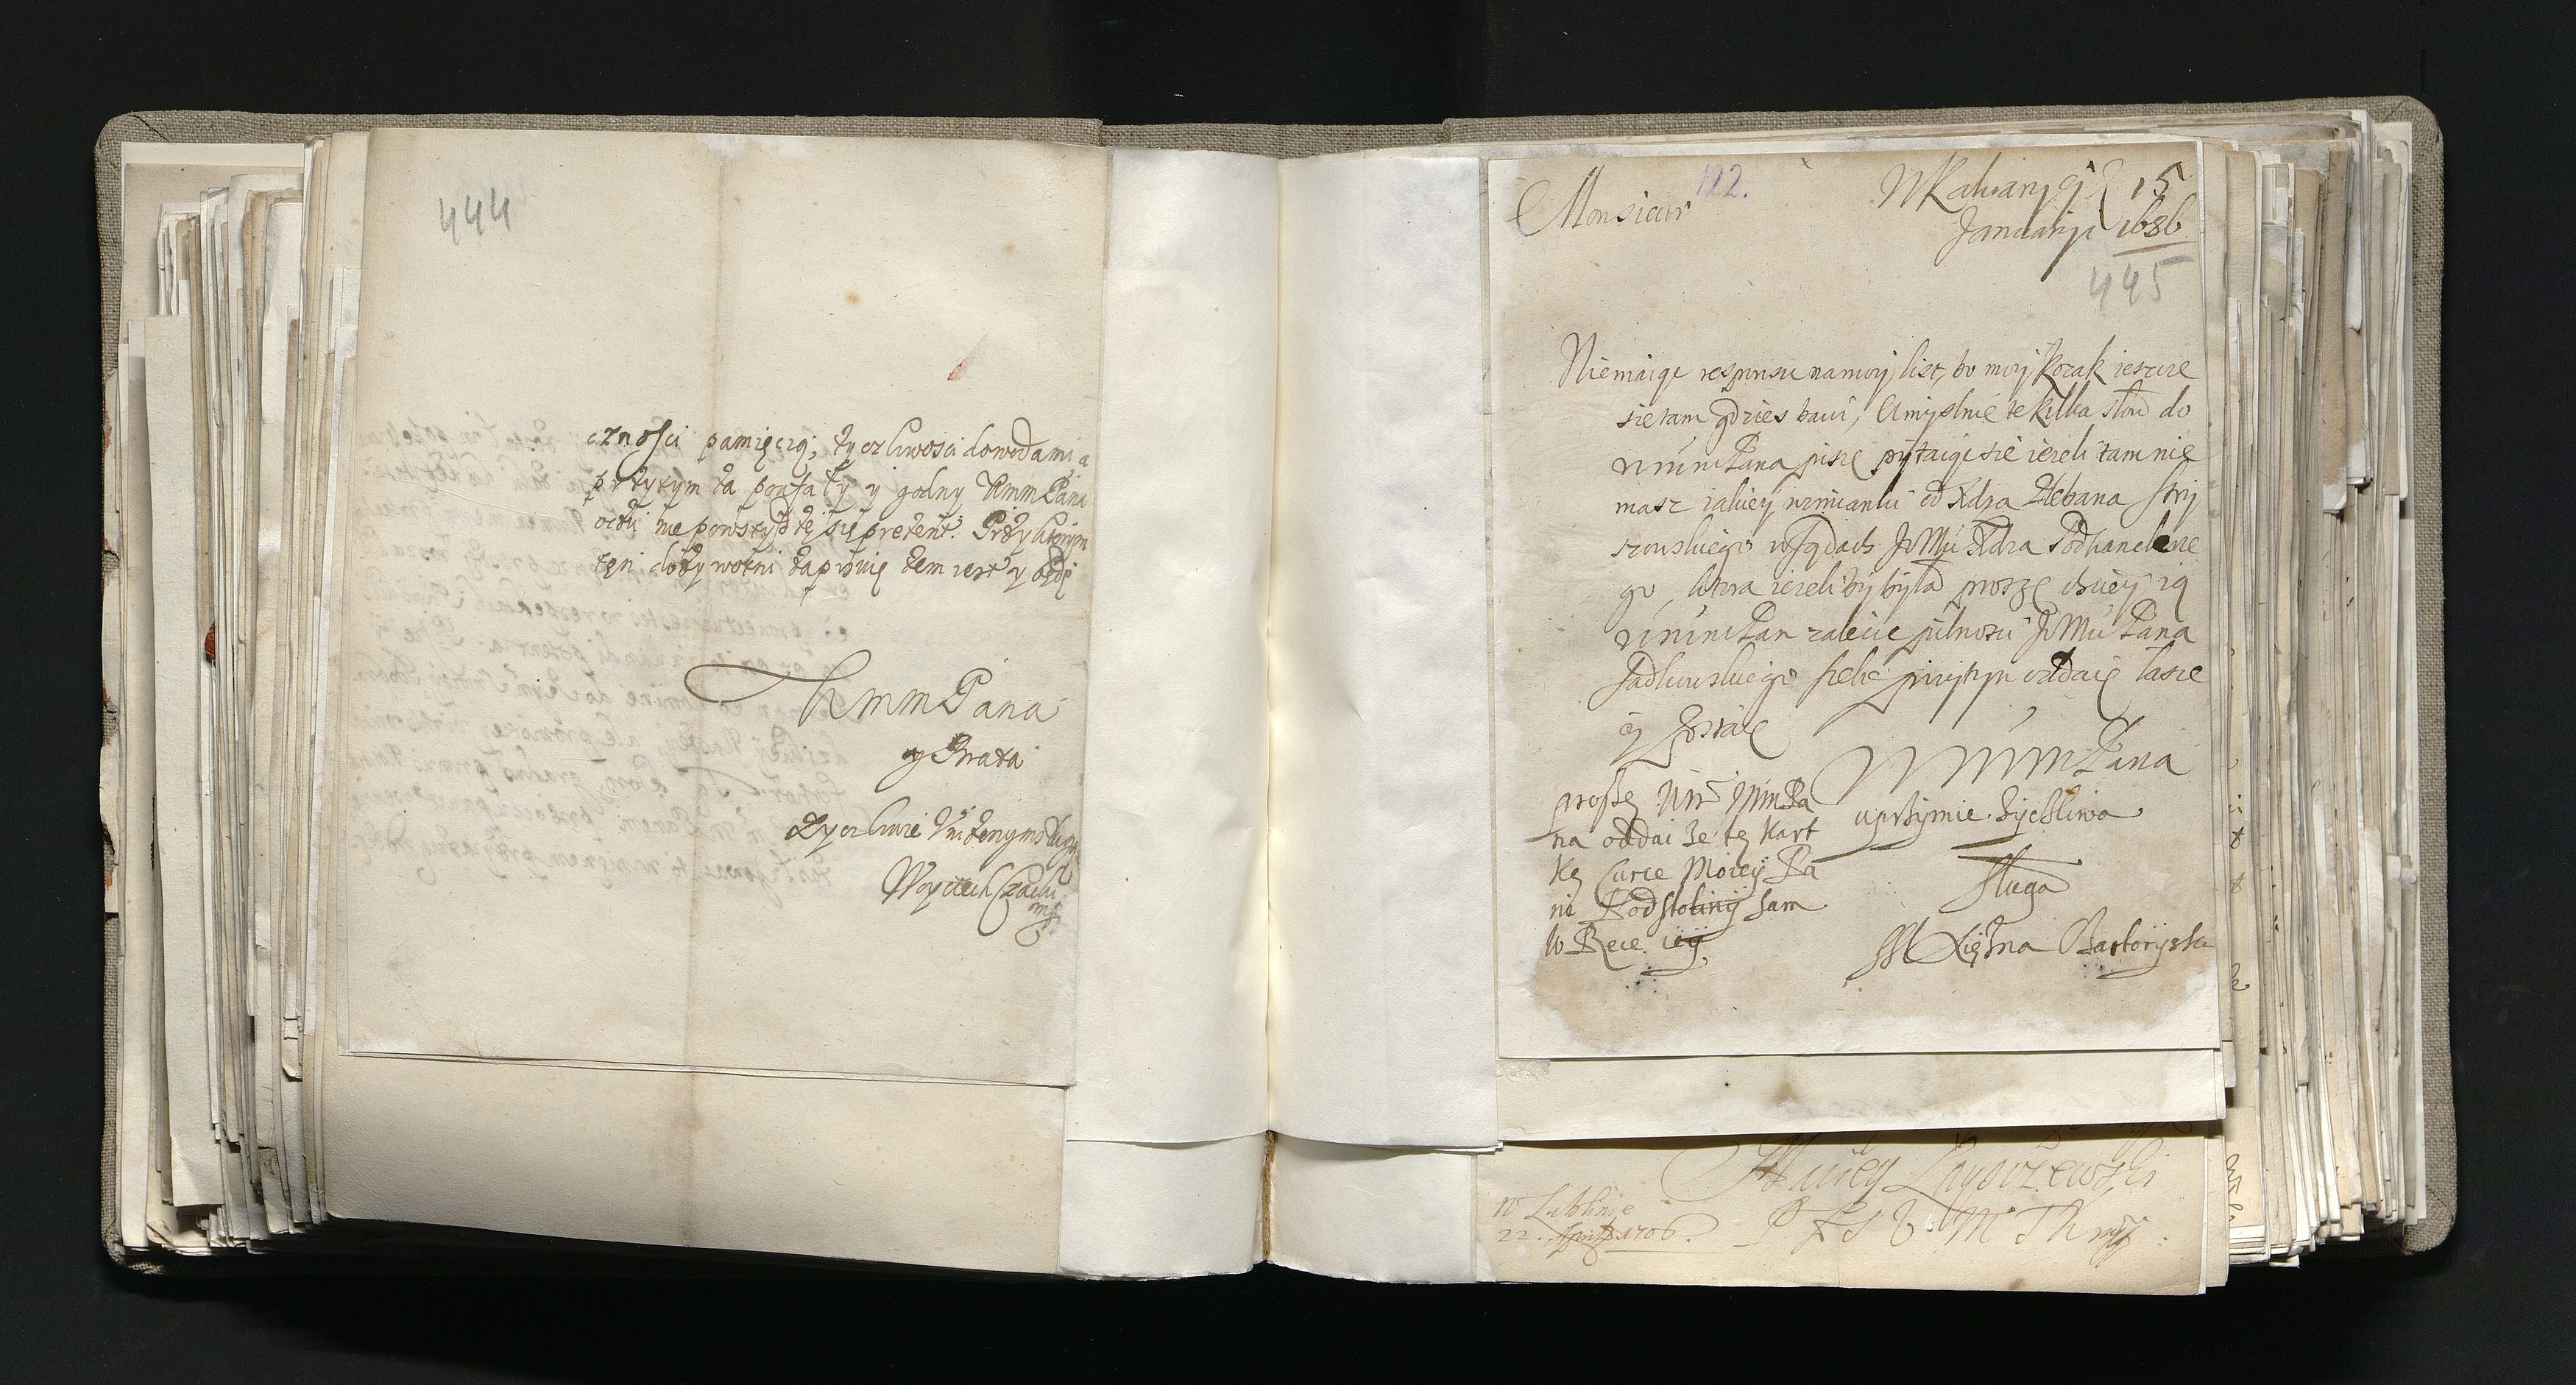 444
czności pamięcią, życzliwości dowodami a
przytym za poufały y godny WmmPana
octu nie powstydzę się prezent. Przy ktorym
ten dożywotni zapisuię żem iest y będę
WmmPana
y Brata
Zyczliwie Uniżenym sługą
Woyciech Czacki
mp
Monsieur
122.
W Kalwaryey 15
Januarij 1686
445
Niemaiąc responsu na moy list, bo moy Kozak ieszcze
sie tam gdzies bawi, Umyslnie te kilka słow do
WmmPana piszę pytaiąc sie iezeli tam nie
masz iakiey wzmianki od Xdza Plebana
w Sądach JoMci Xdza Podkanclerze
go, ktora iezeli by była proszę chciey ią
WmmPan zalecic pilnosci JoMci Pana
Sadkowskiego siebie przytym oddaię łasce
y zostaię
WmmPana
uprzymie życzliwa
sługa
Xiężna Czartoryska
proszę Wm MmPa
na oddai ze tę kart
kę Curce Moiey Pa
ni Podstoliny sam
w Ręce iey
w Lublinie
22 Aprilis 1706.